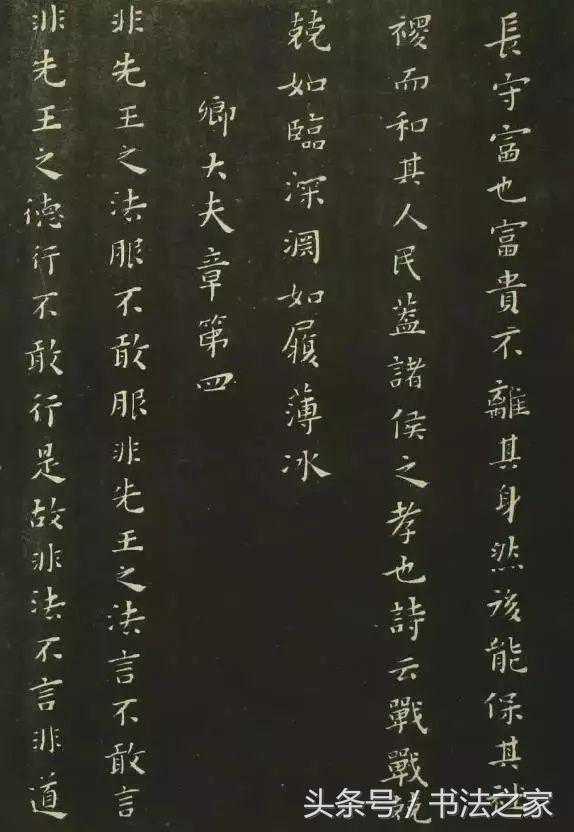 長守富也富貴不離其身然後能保其社
稷而和其人民蓋諸侯之孝也詩云戰戰兢
兢如臨深淵如履薄冰
卿大夫章第四
非先王之法服不敢服非先王之法言不敢言
非先王之德行不敢行是故非法不言非道
头条号/书法之家